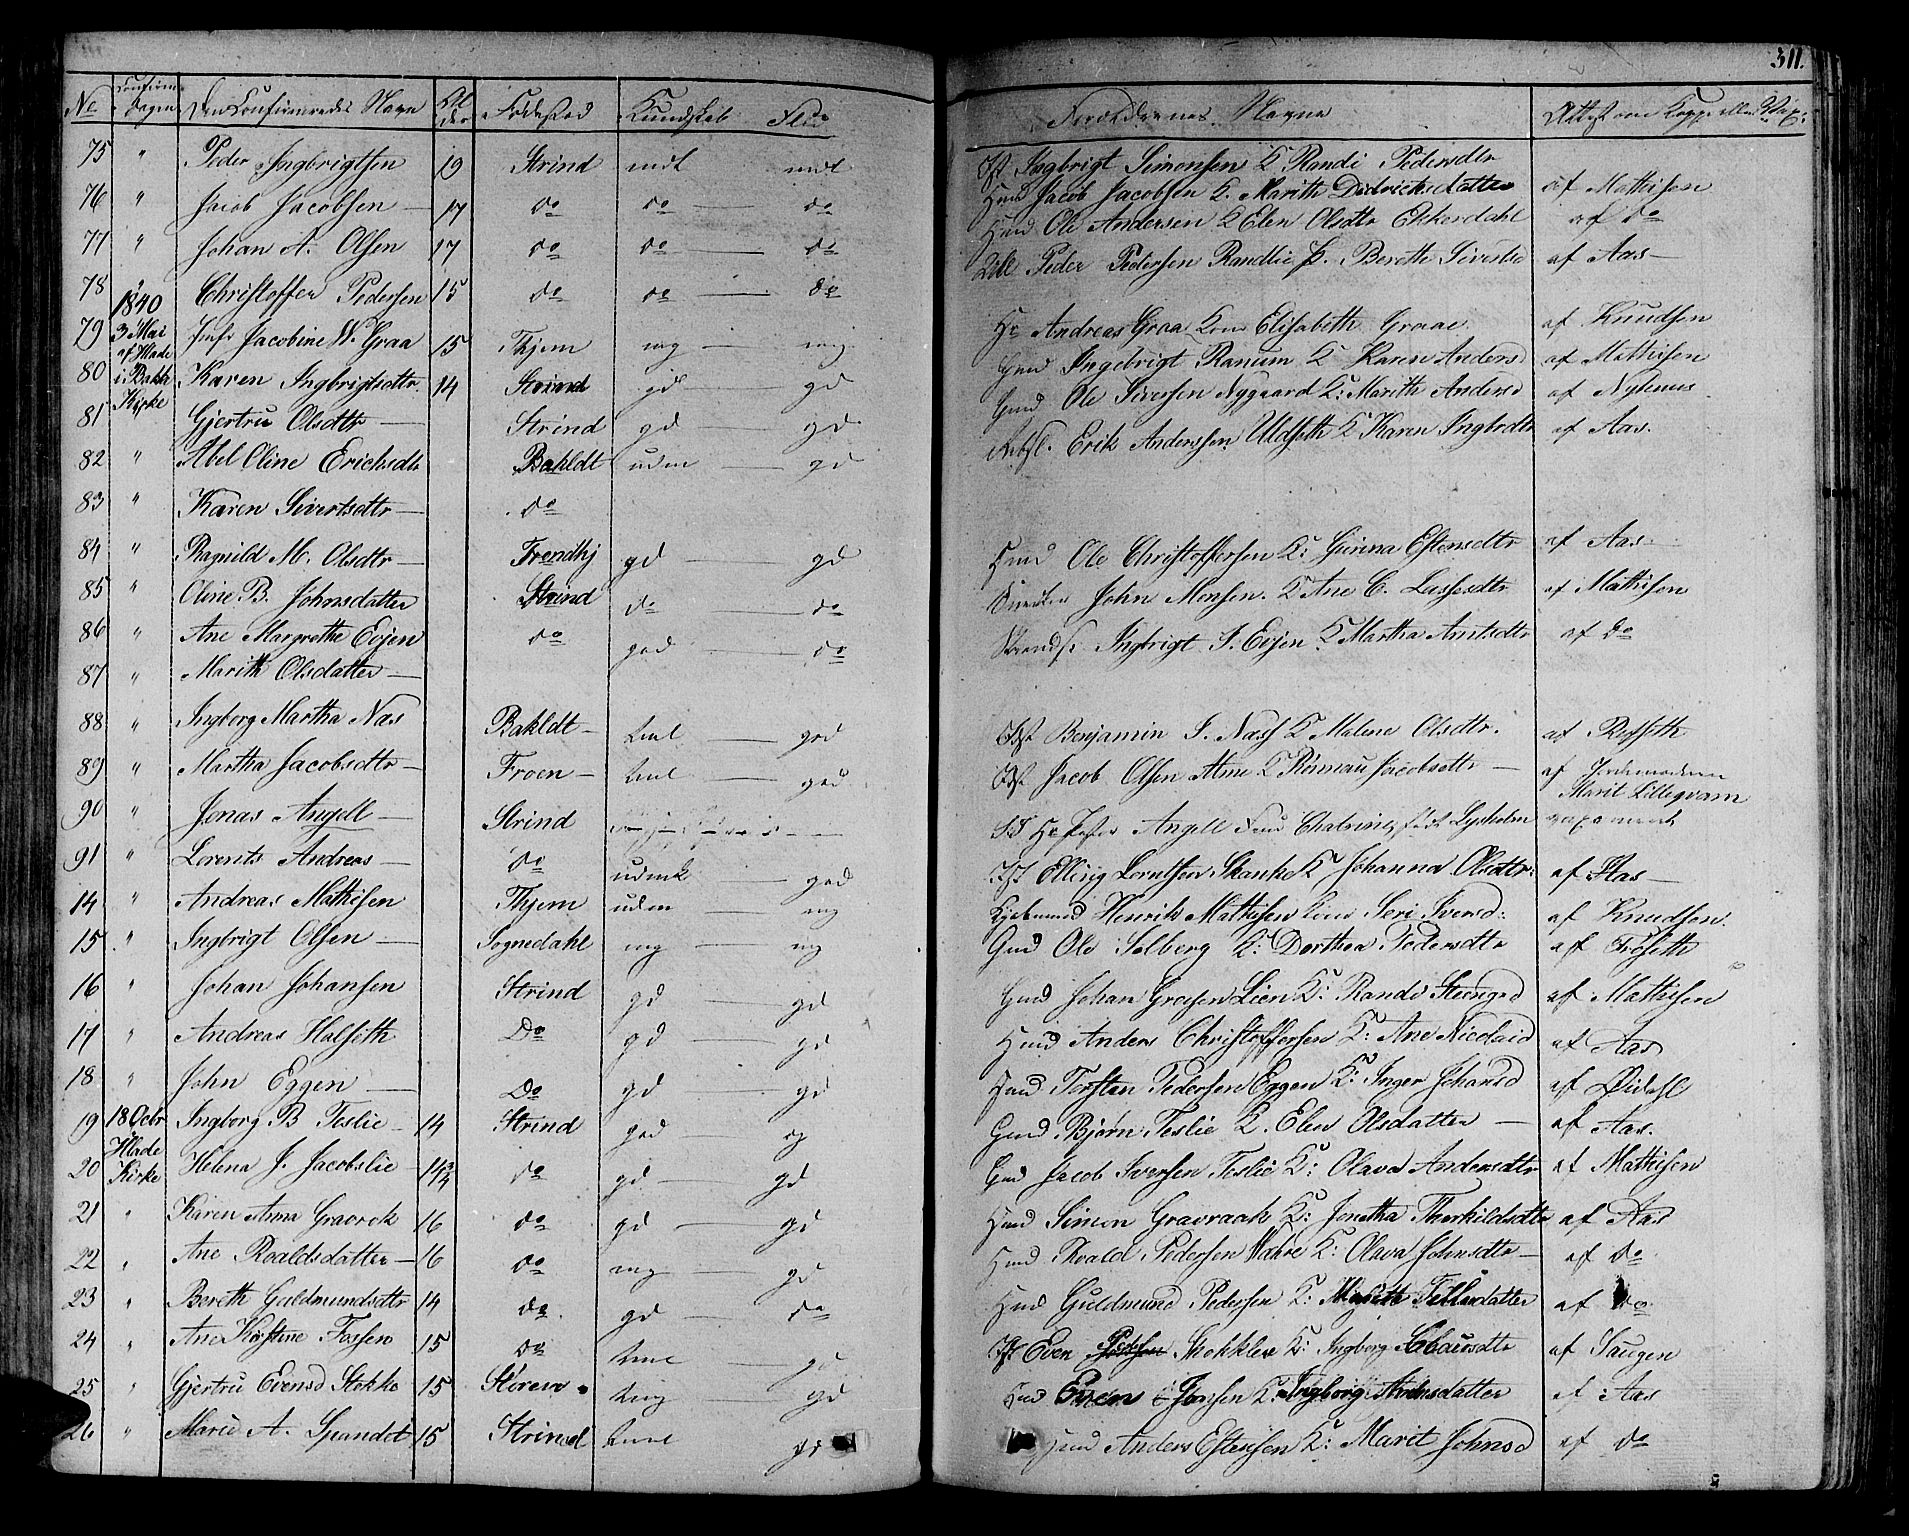 311.
No Confirm. Dagen Den Confirmeredes Navn Al der Fødested Kundskab Flid Forældrenes Navne Attest om Kopper eller Vax:
75 " Peder Ingbrigtsen 19 Strind mdl mdl Ingbrigt Simonsen K Randi Pedersdtr
76 " Jacob Jacobsen — 17 do do — do Huusmd Jacob Jacobsen K. Marith Didrichsdatter af Mathisen
77 " Johan A. Olsen 17 do do — do Ole Andersen K Elen Olsdtr Ekkerdahl af do
78 " Christoffer Pedersen 15 do do — do Peder Pedersen Randlie Berethe Sivertsd af Aas —
79 1840 3 Mai Jacobine W. Graa 15 Thjem mg — mg Hr Andreas Graa Kone Elisabeth Graae. af Knudsen
80 af Hlade i Bakk Kirke Karen Ingbrigtsdtr. 14 Strind gd — gd Gmd Ingebrigt Ranum K Karen Andersd af Mathisen
81 Gjertru Olsdtr — Strind gd — gd Gmd Ole Siversen Nygaard K: Marith Andersd af Nyhuus
82 " Abel Oline Erichsdtr Bakldt udm — gd Erik Anderssen Uldseth K Karen Ingbrdtr af Aas.
83 " Karen Sivertsdtr — do
84 " Ragnild M. Olsdtr — Trondhj gd — gd Ole Christoffersen K: Gurina Estensdtr af Aas —
85 " Oline B. Johnsdatter Strind do — do John Monsen. K Ane C. Lassesdtr af Mathison
86 " Ane Margrethe Evjen do god — do Ingbrigt J. Evjen K Martha Arntsdtr af do
87 " Marith Olsdatter —
88 " Ingborg Martha Næs Bakldt — god Benjamin J. Næss K Malene Olsdtr. af
89 " Martha Jacobsdtr — Froen — — god Jacob Olsen K Rønnau Jacobsdtr — af Jordemoderen Marit Lillegvam
90 " Jonas Angell — Strind Hr Angell Fru Chatrine, født Lysholm
91 " Lorents Andreas — do — god Elling Lorntsen Skanke K Johanna Olsdtr: af Aas —
14 " Andreas Mathisen Thjem udm — mg Henrik Mathisen Kone Seri Iversd: af Knudsen.
15 " Ingbrigt Olsen — Sognedahl mg — mg Gmd Ole Solberg K: Dorthea Pedersdtr af Frøseth
16 " Johan Johansen Strind gd — gd Gmd Johan Lien K: Randi Steengsd af Mathisen
17 " Andreas Halseth Do gd — gd Hmd Anders Christoffersen K: Ane Nicolaid af Aas
18 " John Eggen — Do gd — gd Hmd Torsten Pedersen Eggen K: Inger Johansd af
19 18 Octbr Ingborg B Teslie — 14 Strind god — Gmd Bjørn Teslie K. Elen Olsdatter — af Aas.
20 Hlade Kirke Helena J. Jacobslie — 14¾ do gd — gd Gmd Jacob Iversen Teslie K: Olava Andersdtr af Mathisen
21 " Karen Anna Gravrok 16 do gd — gd Hmd Simon Gravraak K: Jonetha Therkildsdtr af Aas
22 " Ane Roaldsdatter — 16 do mg — gd Hmd Roald Pedersen K: Olava Johnsdtr — af do
23 " Bereth Guldmundsdtr 14 do. gd — do Hmd Guldmund Pedersen K: Marith Tillusdatter af do
24 " Ane Kirstine Fossen 15 do — gd Even Pedersen K: Ingborg Clausdtr af Saugen
25 " Gjertru Evensd Stokke 15 Støren. — gd Hmd Even Jonsen K: Ingborg Arntsdatter af Aas
26 " Marie A. Spandet 15 Strind — gd Hmd Anders Estensen K: Marit Johnsd af do